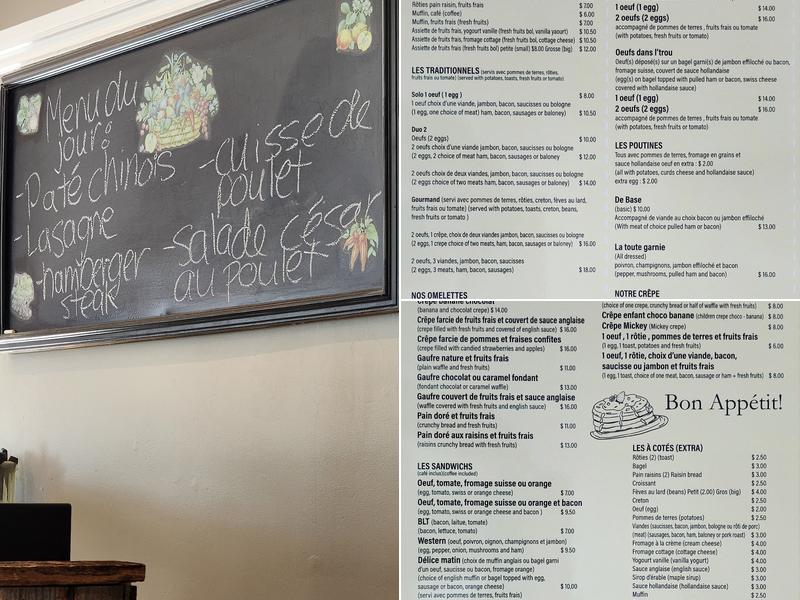 Menu du
jour:
-Paté chinois
-Lasagne
-hamberger
steak
-cuisse de
poulet
-Salade César
au poulet
Rôties pain raisin, fruits frais $ 7.00
Muffin, café (coffee) $ 6.00
Muffin, fruits frais (fresh fruits) $ 7.00
Assiette de fruits frais, yogourt vanille (fresh fruits bol, vanilla yaourt) $ 10.50
Assiette de fruits frais, fromage cottage (fresh fruits bol, cottage cheese) $ 10.50
Assiette de fruits frais (fresh fruits bol) petite (small) $8.00 Grosse (big) $ 12.00
LES TRADITIONNELS (servis avec pommes de terres, rôties,
fruits frais ou tomate) (served with potatoes, toasts, fresh fruits or tomato)
Solo 1 oeuf ( 1 egg ) $ 8.00
1 oeuf choix d'une viande, jambon, bacon, saucisses ou bologne
(1 egg, one choice of meat) ham, bacon, sausages or baloney) $ 10.50
Duo 2
Oeufs (2 eggs) $ 10.00
2 oeufs choix d'une viande jambon, bacon, saucisses ou bologne
(2 eggs, 2 choice of meat ham, bacon, sausages or baloney) $ 12.00
2 oeufs choix de deux viandes jambon, bacon, saucisses ou bologne
(2 eggs choice of two meats ham, bacon, sausages or baloney) $ 14.00
Gourmand (servi avec pommes de terres, rôties, creton, fèves au lard,
fruits frais ou tomate) (served with potatoes, toasts, creton, beans,
fresh fruits or tomato )
2 oeufs, 1 crêpe, choix de deux viandes jambon, bacon, saucisses ou bologne
(2 eggs, 1 crepe choice of two meats, ham, bacon, sausages or baloney) $ 16.00
2 oeufs, 3 viandes, jambon, bacon, saucisses
(2 eggs, 3 meats, ham, bacon, sausages) $ 18.00
NOS OMELETTES
1 oeuf (1 egg) $ 14.00
2 oeufs (2 eggs) $ 16.00
accompagné de pommes de terres , fruits frais ou tomate
(with potatoes, fresh fruits or tomato)
Oeufs dans l'trou
Oeuf(s) déposé(s) sur un bagel garni(s) de jambon effiloché ou bacon,
fromage suisse, couvert de sauce hollandaise
(egg(s) on bagel topped with pulled ham or bacon, swiss cheese
covered with hollandaise sauce)
1 oeuf (1 egg) $ 14.00
2 oeufs (2 eggs) $ 16.00
accompagné de pommes de terres , fruits frais ou tomate
(with potatoes, fresh fruits or tomato)
LES POUTINES
Tous avec pommes de terres, fromage en grains et
sauce hollandaise oeuf en extra : $ 2.00
(all with potatoes, curds cheese and hollandaise sauce)
extra egg : $ 2.00
De Base
(basic) $ 10.00
Accompagné de viande au choix bacon ou jambon effiloché
(With meat of choice pulled ham or bacon) $ 13.00
La toute garnie
(All dressed)
poivron, champignons, jambon effiloché et bacon
(pepper, mushrooms, pulled ham and bacon) $ 16.00
NOTRE CRÊPE
Crêpe banane chocolat
(banana and chocolat crepe) $ 14.00
Crêpe farcie de fruits frais et couvert de sauce anglaise
(crepe filled with fresh fruits and covered of english sauce) $ 16.00
Crêpe farcie de pommes et fraises confites
(crepe filled with candied strawberries and apples) $ 16.00
Gaufre nature et fruits frais
(plain waffle and fresh fruits) $ 11.00
Gaufre chocolat ou caramel fondant
(fondant chocolat or caramel waffle) $ 13.00
Gaufre couvert de fruits frais et sauce anglaise
(waffle covered with fresh fruits and english sauce) $ 16.00
Pain doré et fruits frais
(crunchy bread and fresh fruits) $ 11.00
Pain doré aux raisins et fruits frais
(raisins crunchy bread with fresh fruits) $ 13.00
LES SANDWICHS
(café inclus)(coffee included)
Oeuf, tomate, fromage suisse ou orange
(egg, tomato, swiss or orange cheese) $ 7.00
Oeuf, tomate, fromage suisse ou orange et bacon
(egg, tomato, swiss or orange cheese and bacon ) $ 9.50
BLT (bacon, laitue, tomate)
(bacon, lettuce, tomato) $ 7.00
Western (oeuf, poivron, oignon, champignons et jambon)
(egg, pepper, onion, mushrooms and ham) $ 9.50
Délice matin (choix de muffin anglais ou bagel garni
d'un oeuf, saucisse ou bacon, fromage orange)
(choice of english muffin or bagel topped with egg,
sausage or bacon, orange cheese) $ 10,00
(servi avec pommes de terres, fruits frais)
(choice of one crepe, crunchy bread or half of waffle with fresh fruits) $ 8.00
Crêpe enfant choco banane (children crepe choco - banana) $ 8.00
Crêpe Mickey (Mickey crepe) $ 8.00
1 oeuf , 1 rôtie , pommes de terres et fruits frais
(1 egg, 1 toast, potatoes and fresh fruits) $ 6.00
1 oeuf, 1 rôtie, choix d'une viande, bacon,
saucisse ou jambon et fruits frais
(1 egg, 1 toast, choice of one meat, bacon, sausage or ham + fresh fruits) $ 8.00
Bon Appétit!
LES À COTÉS (EXTRA)
Rôties (2) (toast) $ 2.50
Bagel $ 3.00
Pain raisins (2) Raisin bread $ 3.00
Croissant $ 2.50
Fèves au lard (beans) Petit (2.00) Gros (big) $ 4.00
Cretons $ 2.50
Oeuf (egg) $ 2.00
Pommes de terres (potatoes) $ 2.50
Viandes (saucisses, bacon, jambon, bologne ou rôti de porc)
(meat) (sausages, bacon, ham, baloney or pork roast) $ 3.00
Fromage à la crème (cream cheese) $ 4.00
Fromage cottage (cottage cheese) $ 4.00
Yogourt vanille (vanilla yogurt) $ 4.00
Sauce anglaise (english sauce) $ 3.00
Sirop d'érable (maple sirup) $ 3.00
Sauce hollandaise (hollandaise sauce) $ 3.00
Muffin $ 2.50